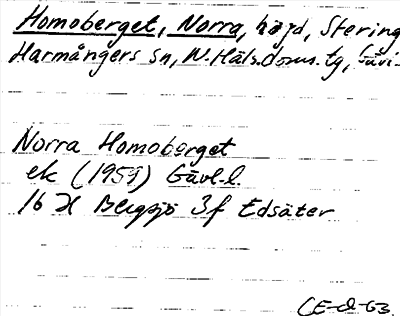 Homoberget, Norra, höjd, Stering
Harmångers sn, N. Häls. doms. tg, Gävl.
Norra Homoberget
ek (1959) Gävl. l.
16 H Bergsjö 3f Edsäter